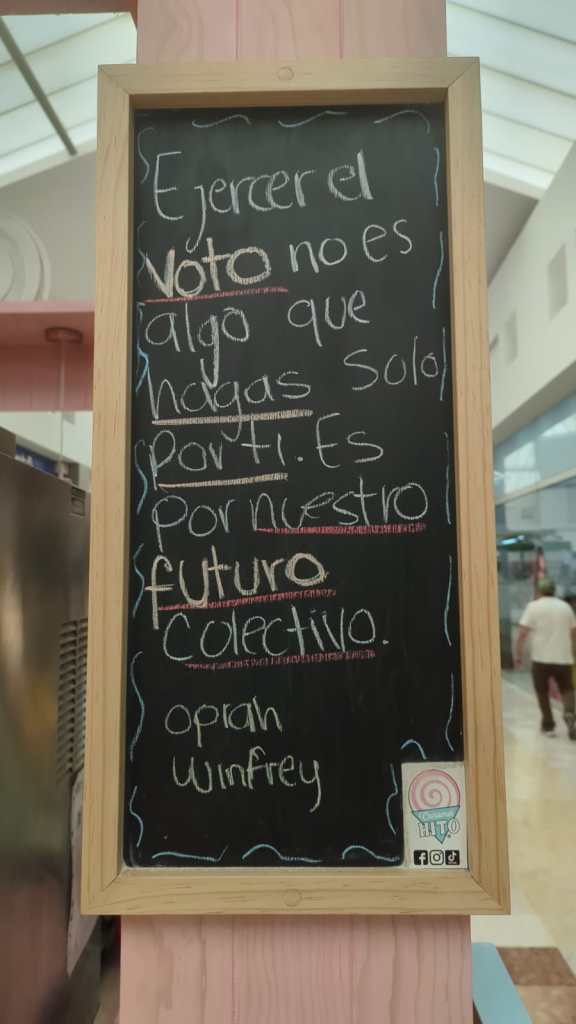 Ejercer el
voto no es
algo que
hagas solo
por ti. Es
por nuestro
futuro
Colectivo.
oprah
winfrey
HITO